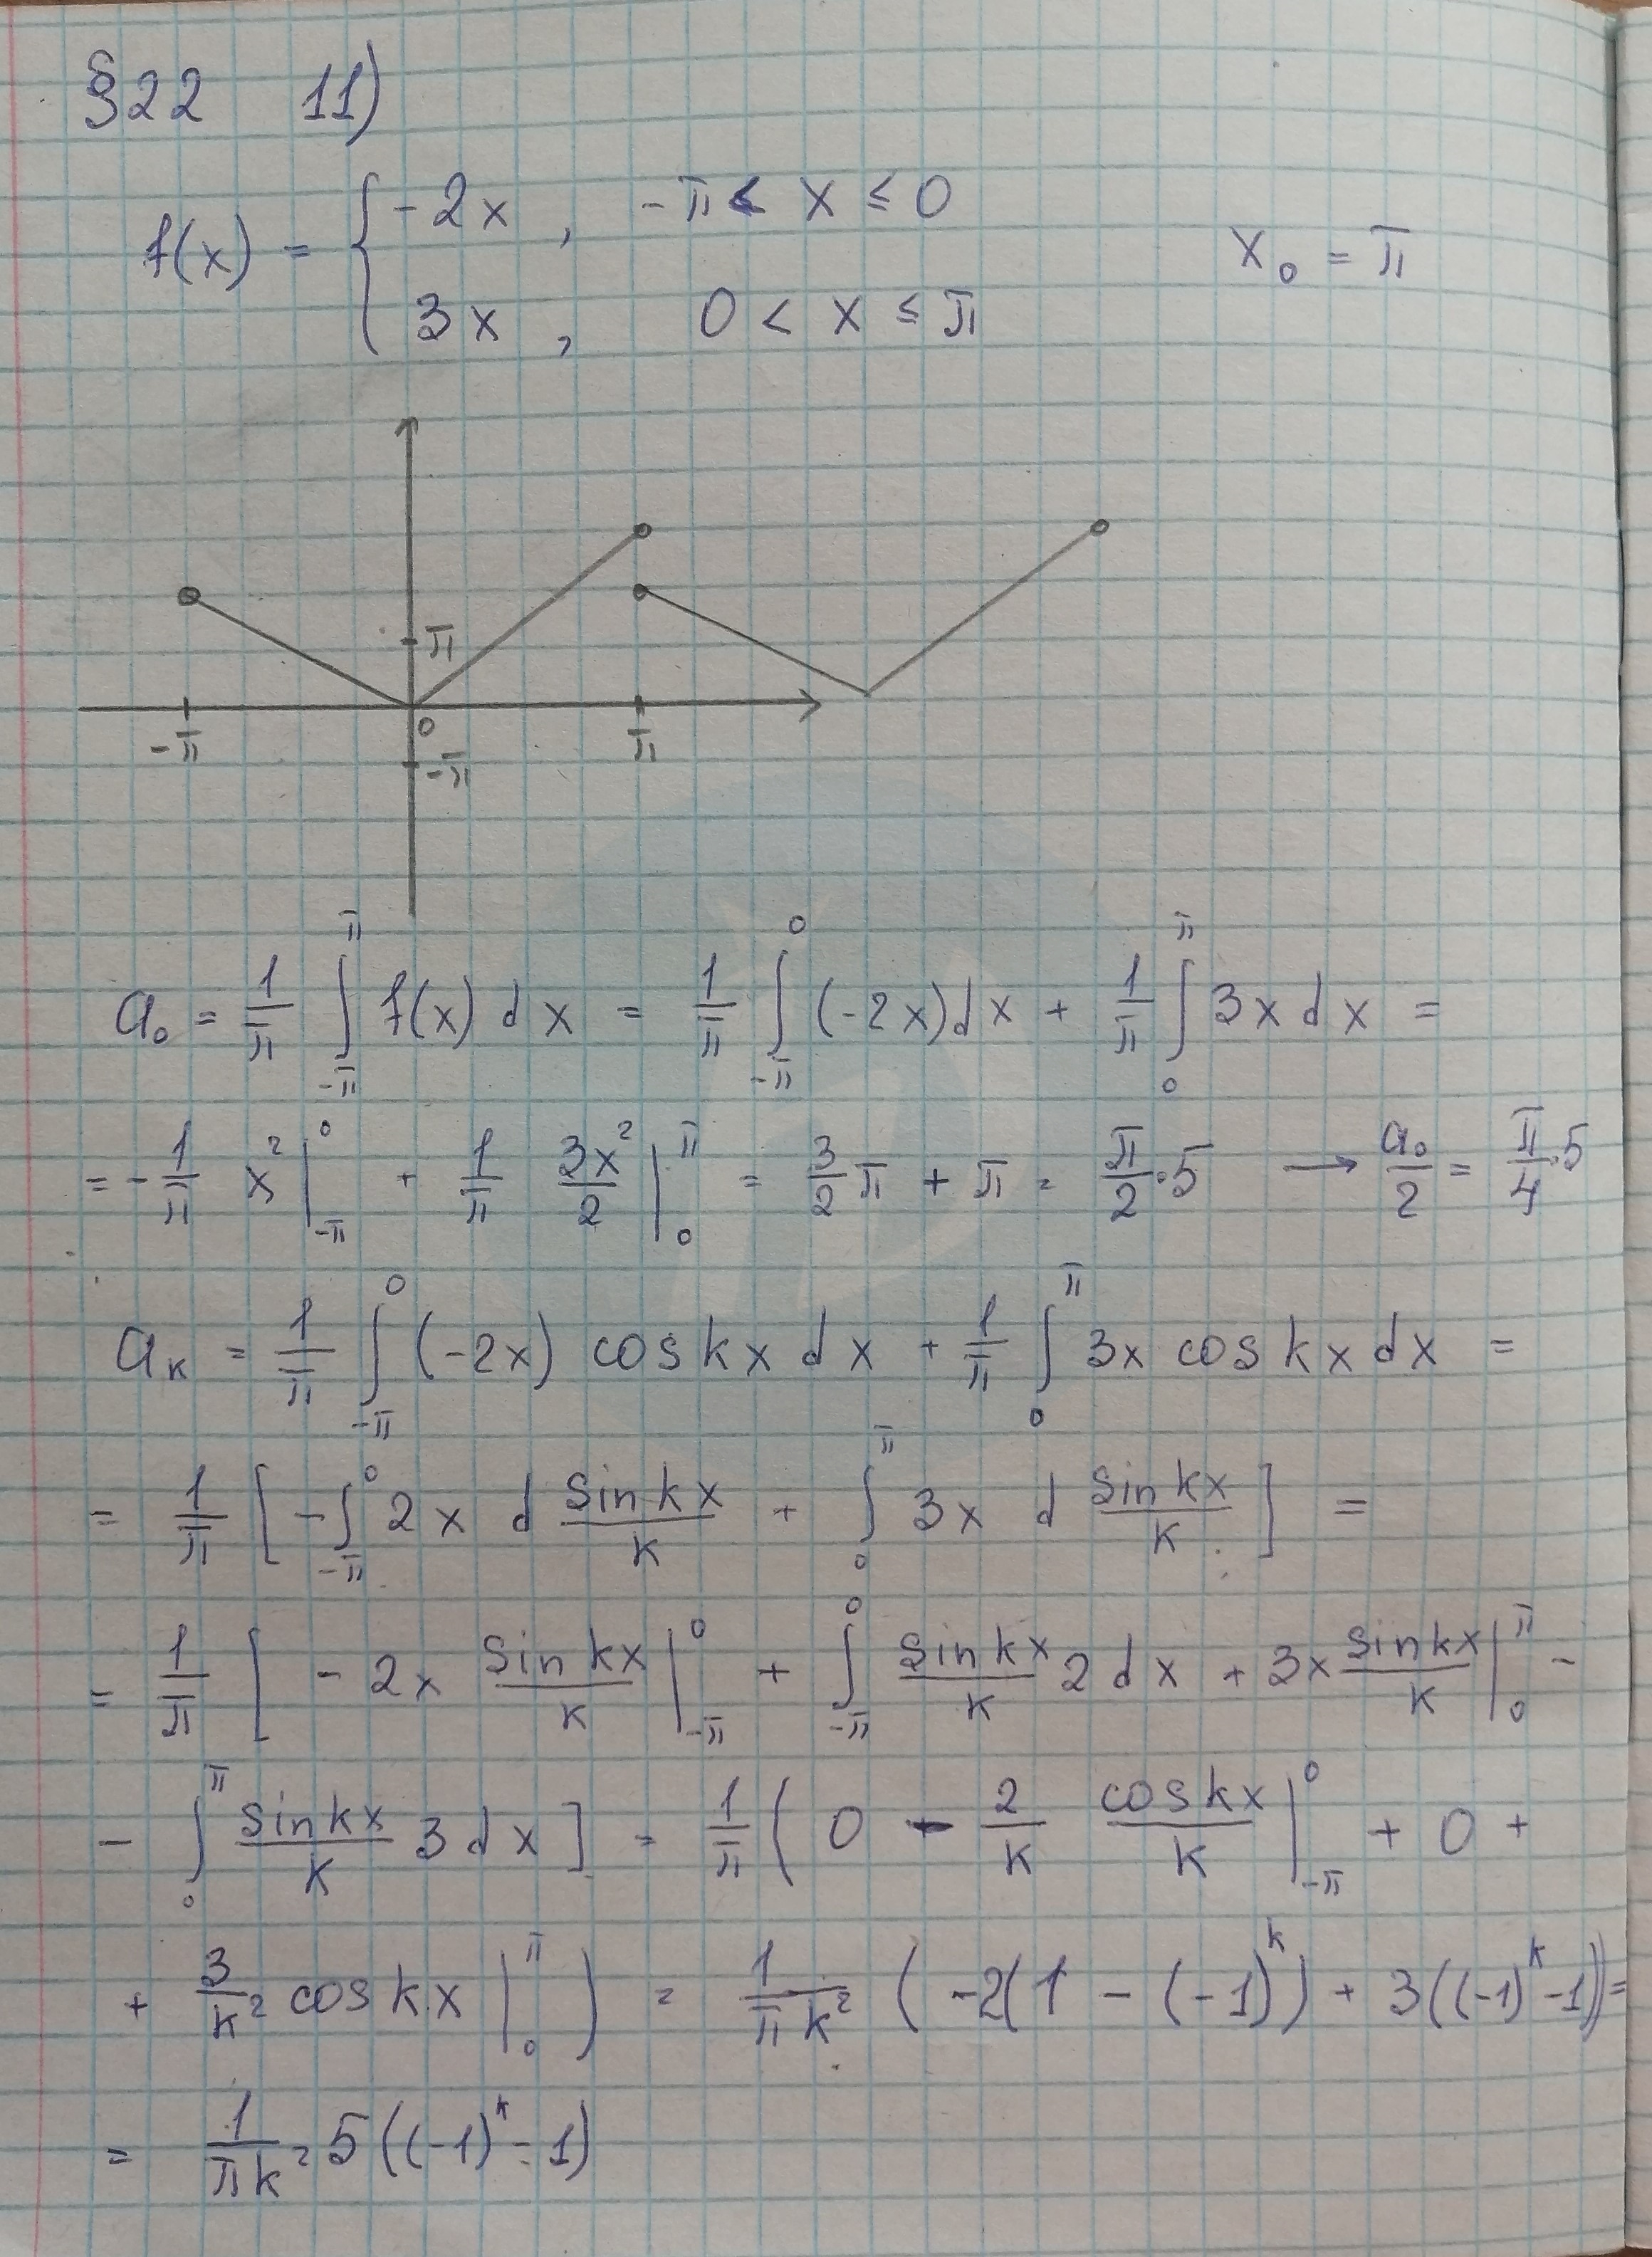 §22 11)
f(x) = { -2x , -π < x ≤ 0
3x , 0 < x ≤ π
x₀ = π
π
-π 0 π
-π
a₀ = 1/π ∫_{-π}^{π} f(x) dx = 1/π ∫_{-π}^{0} (-2x)dx + 1/π ∫_{0}^{π} 3x dx =
= -1/π x² |_{-π}^{0} + 1/π 3x²/2 |_{0}^{π} = 3/2 π + π = π/2 · 5 → a₀/2 = π/4 · 5
aₖ = 1/π ∫_{-π}^{0} (-2x) cos kx dx + 1/π ∫_{0}^{π} 3x cos kx dx =
= 1/π [ -∫_{-π}^{0} 2x d sin kx/k + ∫_{0}^{π} 3x d sin kx/k ] =
= 1/π [ - 2x sin kx/k |_{-π}^{0} + ∫_{-π}^{0} sin kx/k 2 dx + 3x sin kx/k |_{0}^{π} -
- ∫_{0}^{π} sin kx/k 3 dx ] = 1/π ( 0 - 2/k cos kx/k |_{-π}^{0} + 0 +
+ 3/k² cos kx |_{0}^{π} ) = 1/(πk²) ( -2(1 - (-1)^k) + 3((-1)^k - 1)) =
= 1/(πk²) 5((-1)^k - 1)